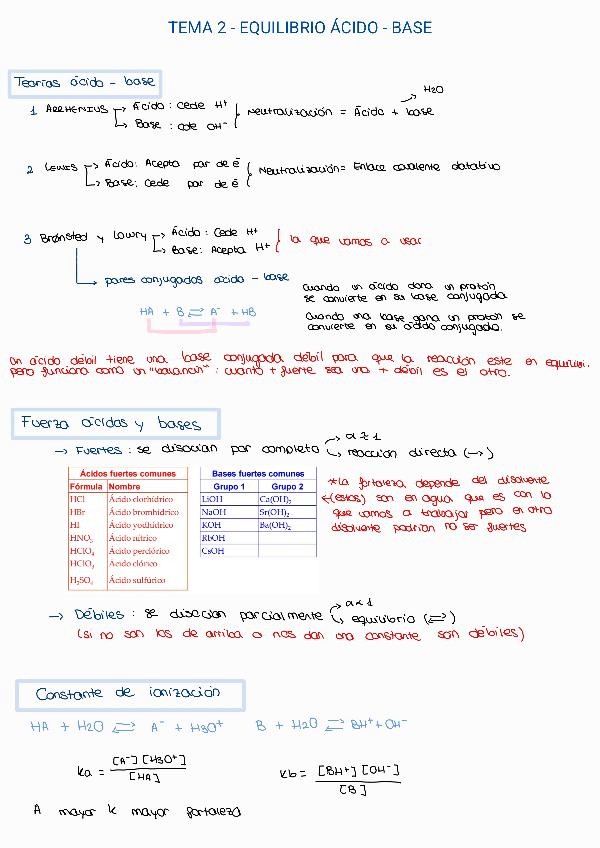 TEMA 2 - EQUILIBRIO ÁCIDO - BASE
Teorías ácido - base
H2O
1 ARRHENIUS → Ácido : Cede H+
↳ Base : cede OH-
Neutralización = Ácido + base
2 LEWIS → Ácido: Acepta par de ē
↳ Base: Cede par de ē
Neutralización = Enlace covalente datativo
3 Brønsted y Lowry → Ácido : Cede H+
↳ Base: Acepta H+
la que vamos a usar
→ pares conjugados ácido - base
HA + B ⇌ A- + HB
Cuando un ácido dona un protón
se convierte en su base conjugada
Cuando una base gana un protón se
convierte en su ácido conjugado.
Un ácido débil tiene una base conjugada débil para que la reacción este en equilibri.
pero funciona como un "balancin" : cuanto + fuerte sea una + débil es el otro.
Fuerza ácidas y bases
→ Fuertes : se disocian por completo → α ≈ 1
↳ reacción directa (→)
Ácidos fuertes comunes
Fórmula Nombre
HCl Ácido clorhídrico
HBr Ácido bromhídrico
HI Ácido yodhídrico
HNO3 Ácido nítrico
HClO4 Ácido perclórico
HClO3 Ácido clórico
H2SO4 Ácido sulfúrico
Bases fuertes comunes
Grupo 1 Grupo 2
LiOH Ca(OH)2
NaOH Sr(OH)2
KOH Ba(OH)2
RbOH
CsOH
*La fortaleza depende del disolvente
←(estos) son en agua que es con lo
que vamos a trabajar pero en otro
disolvente podrían no ser fuertes
→ Débiles : se disocian parcialmente → α < 1
↳ equilibrio (⇌)
(si no son los de arriba o nos dan una constante son débiles)
Constante de ionización
HA + H2O ⇌ A- + H3O+
B + H2O ⇌ BH+ + OH-
Ka = [A-] [H3O+] / [HA]
Kb = [BH+] [OH-] / [B]
A mayor k mayor fortaleza